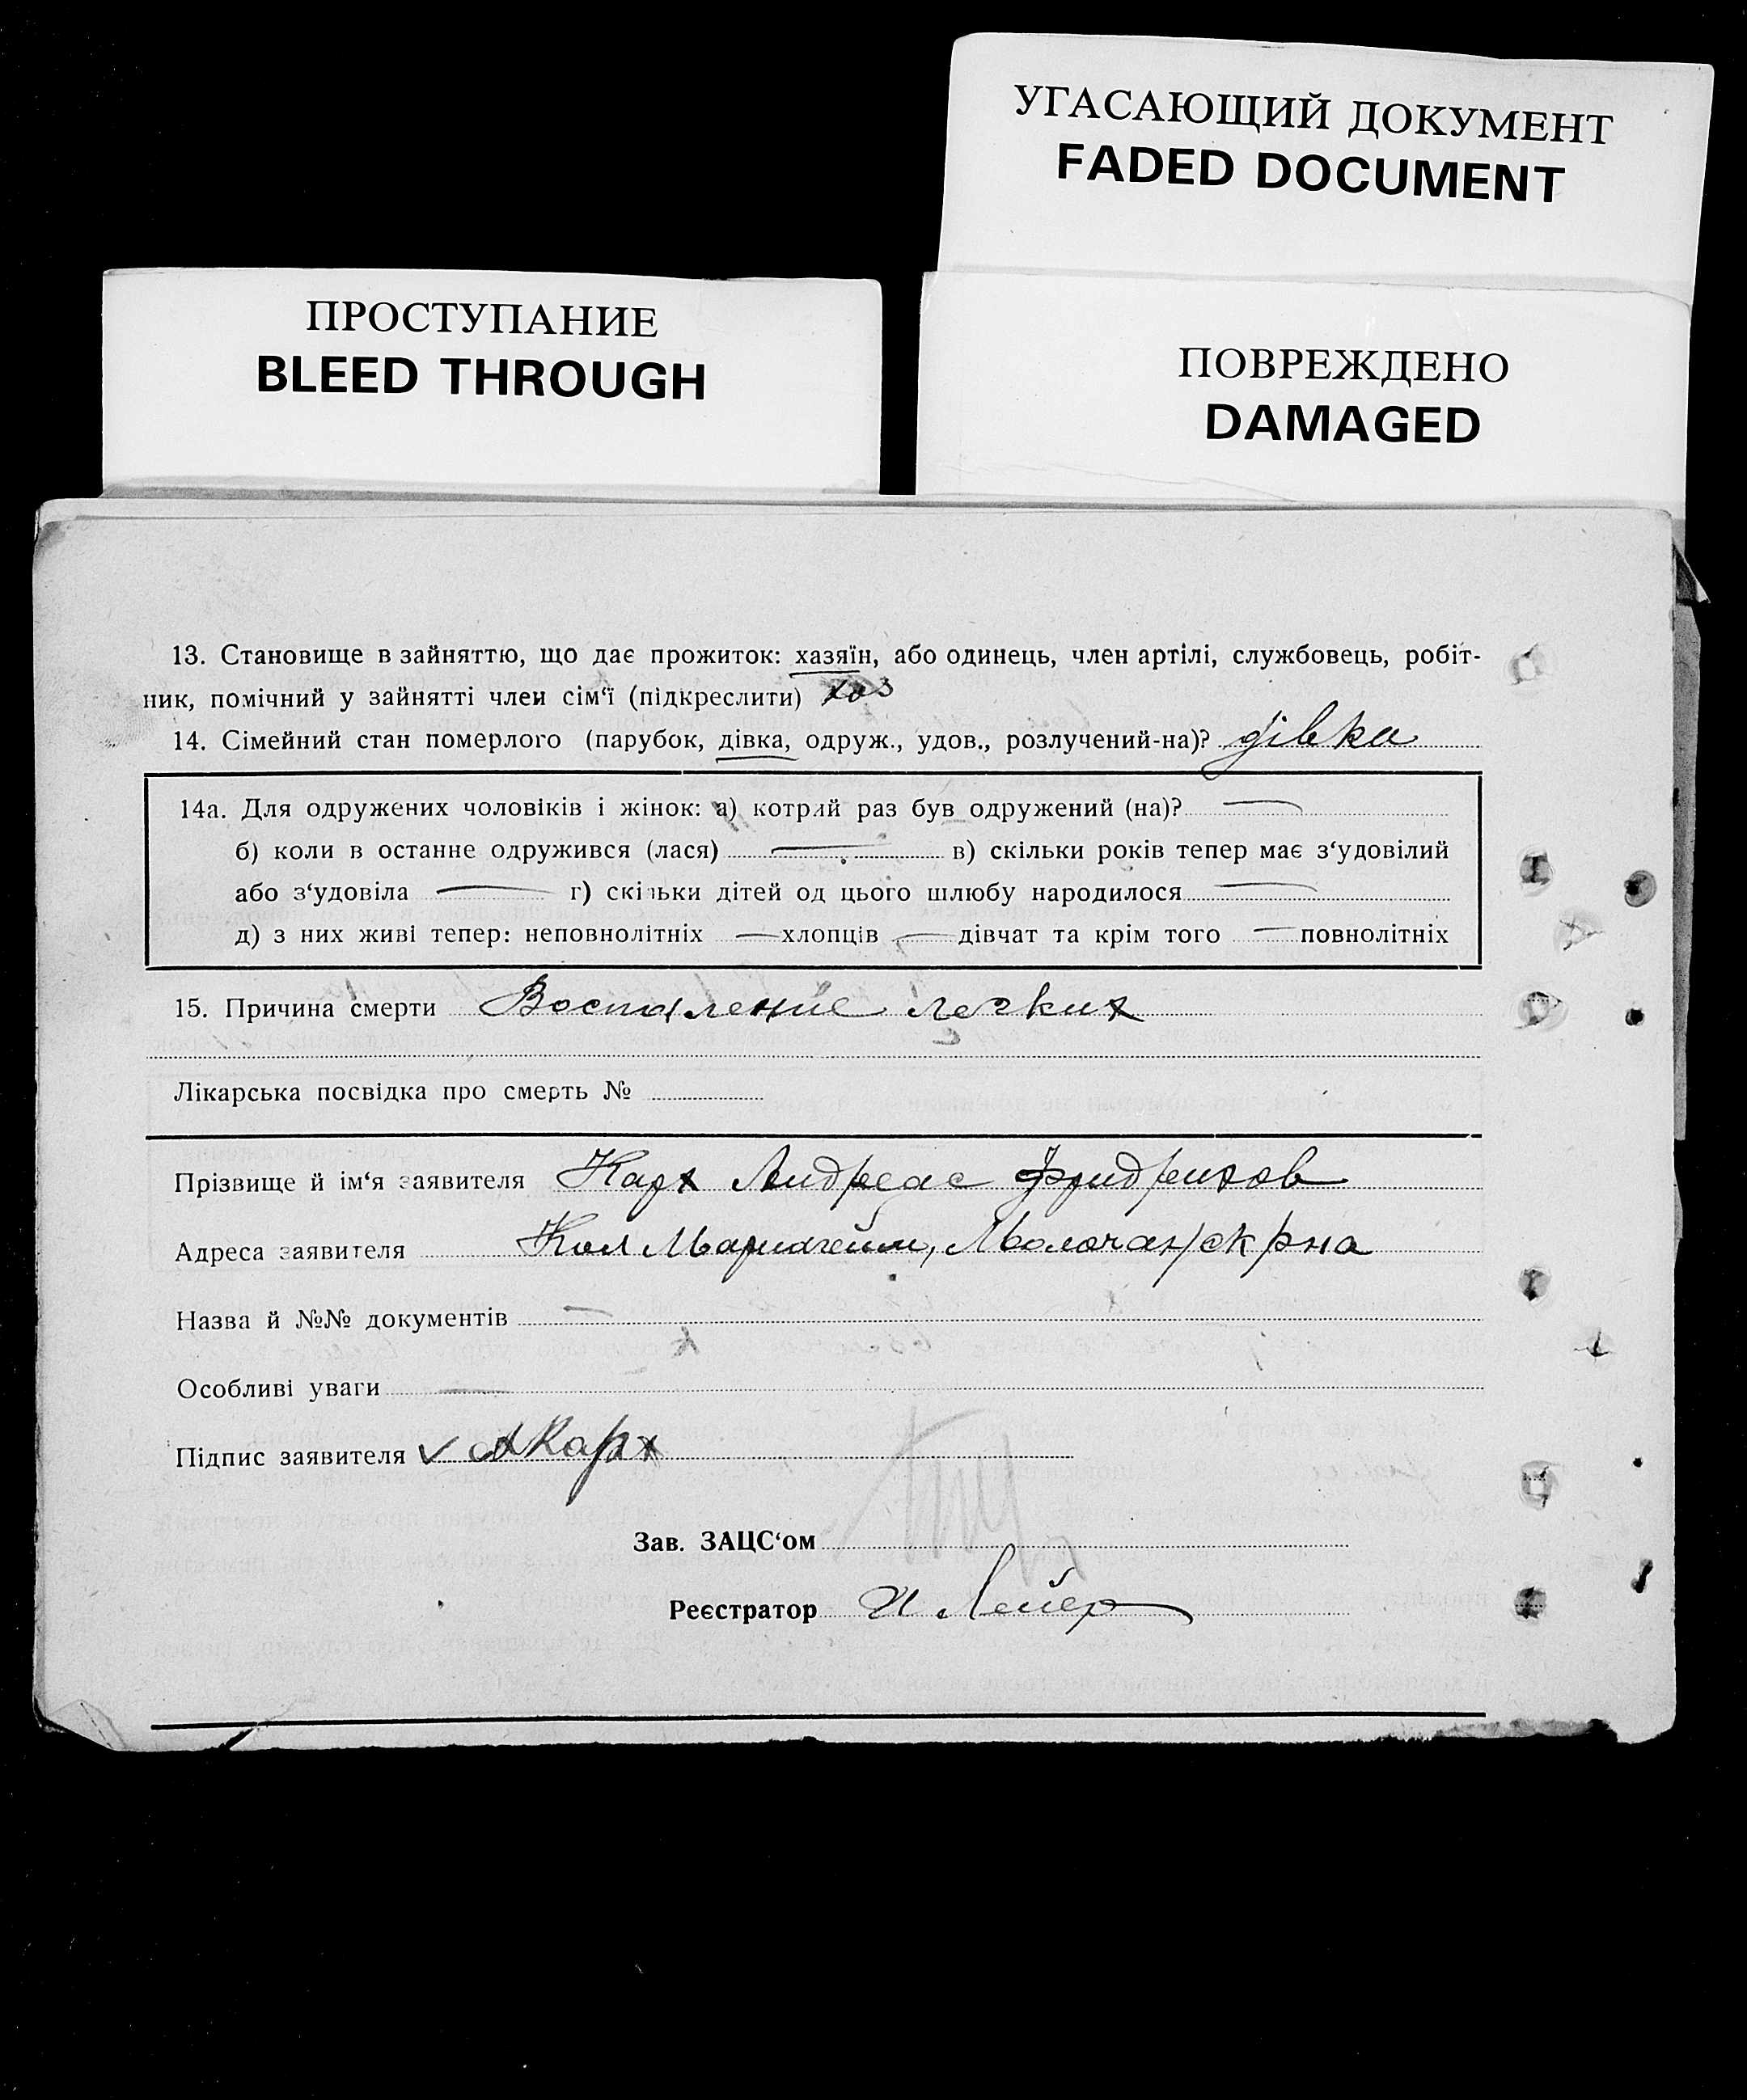 УГАСАЮЩИЙ ДОКУМЕНТ
FADED DOCUMENT
ПРОСТУПАНИЕ
BLEED THROUGH
ПОВРЕЖДЕНО
DAMAGED
13. Становище в зайняттю, що дає прожиток: хазяїн, або одинець, член артілі, службовець, робіт-
ник, помічний у зайнятті член сім‘ї (підкреслити) хаз
14. Сімейний стан померлого (парубок, дівка, одруж., удов., розлучений-на)? дівка
14а. Для одружених чоловіків і жінок: а) котрий раз був одружений (на)? —
б) коли в останнє одружився (лася) — в) скільки років тепер має з‘удовілий
або з‘удовіла — г) скільки дітей од цього шлюбу народилося —
д) з них живі тепер: неповнолітніх — хлопців — дівчат та крім того — повнолітніх
15. Причина смерти Воспаление легких
Лікарська посвідка про смерть №
Прізвище й ім‘я заявителя Карх Андреас Фридрихов
Адреса заявителя Кол Мариагейм, Молочанск рна
Назва й №№ документів —
Особливі уваги —
Підпис заявителя ✓ АКарх
Зав. ЗАЦС‘ом
Реєстратор И Лейер